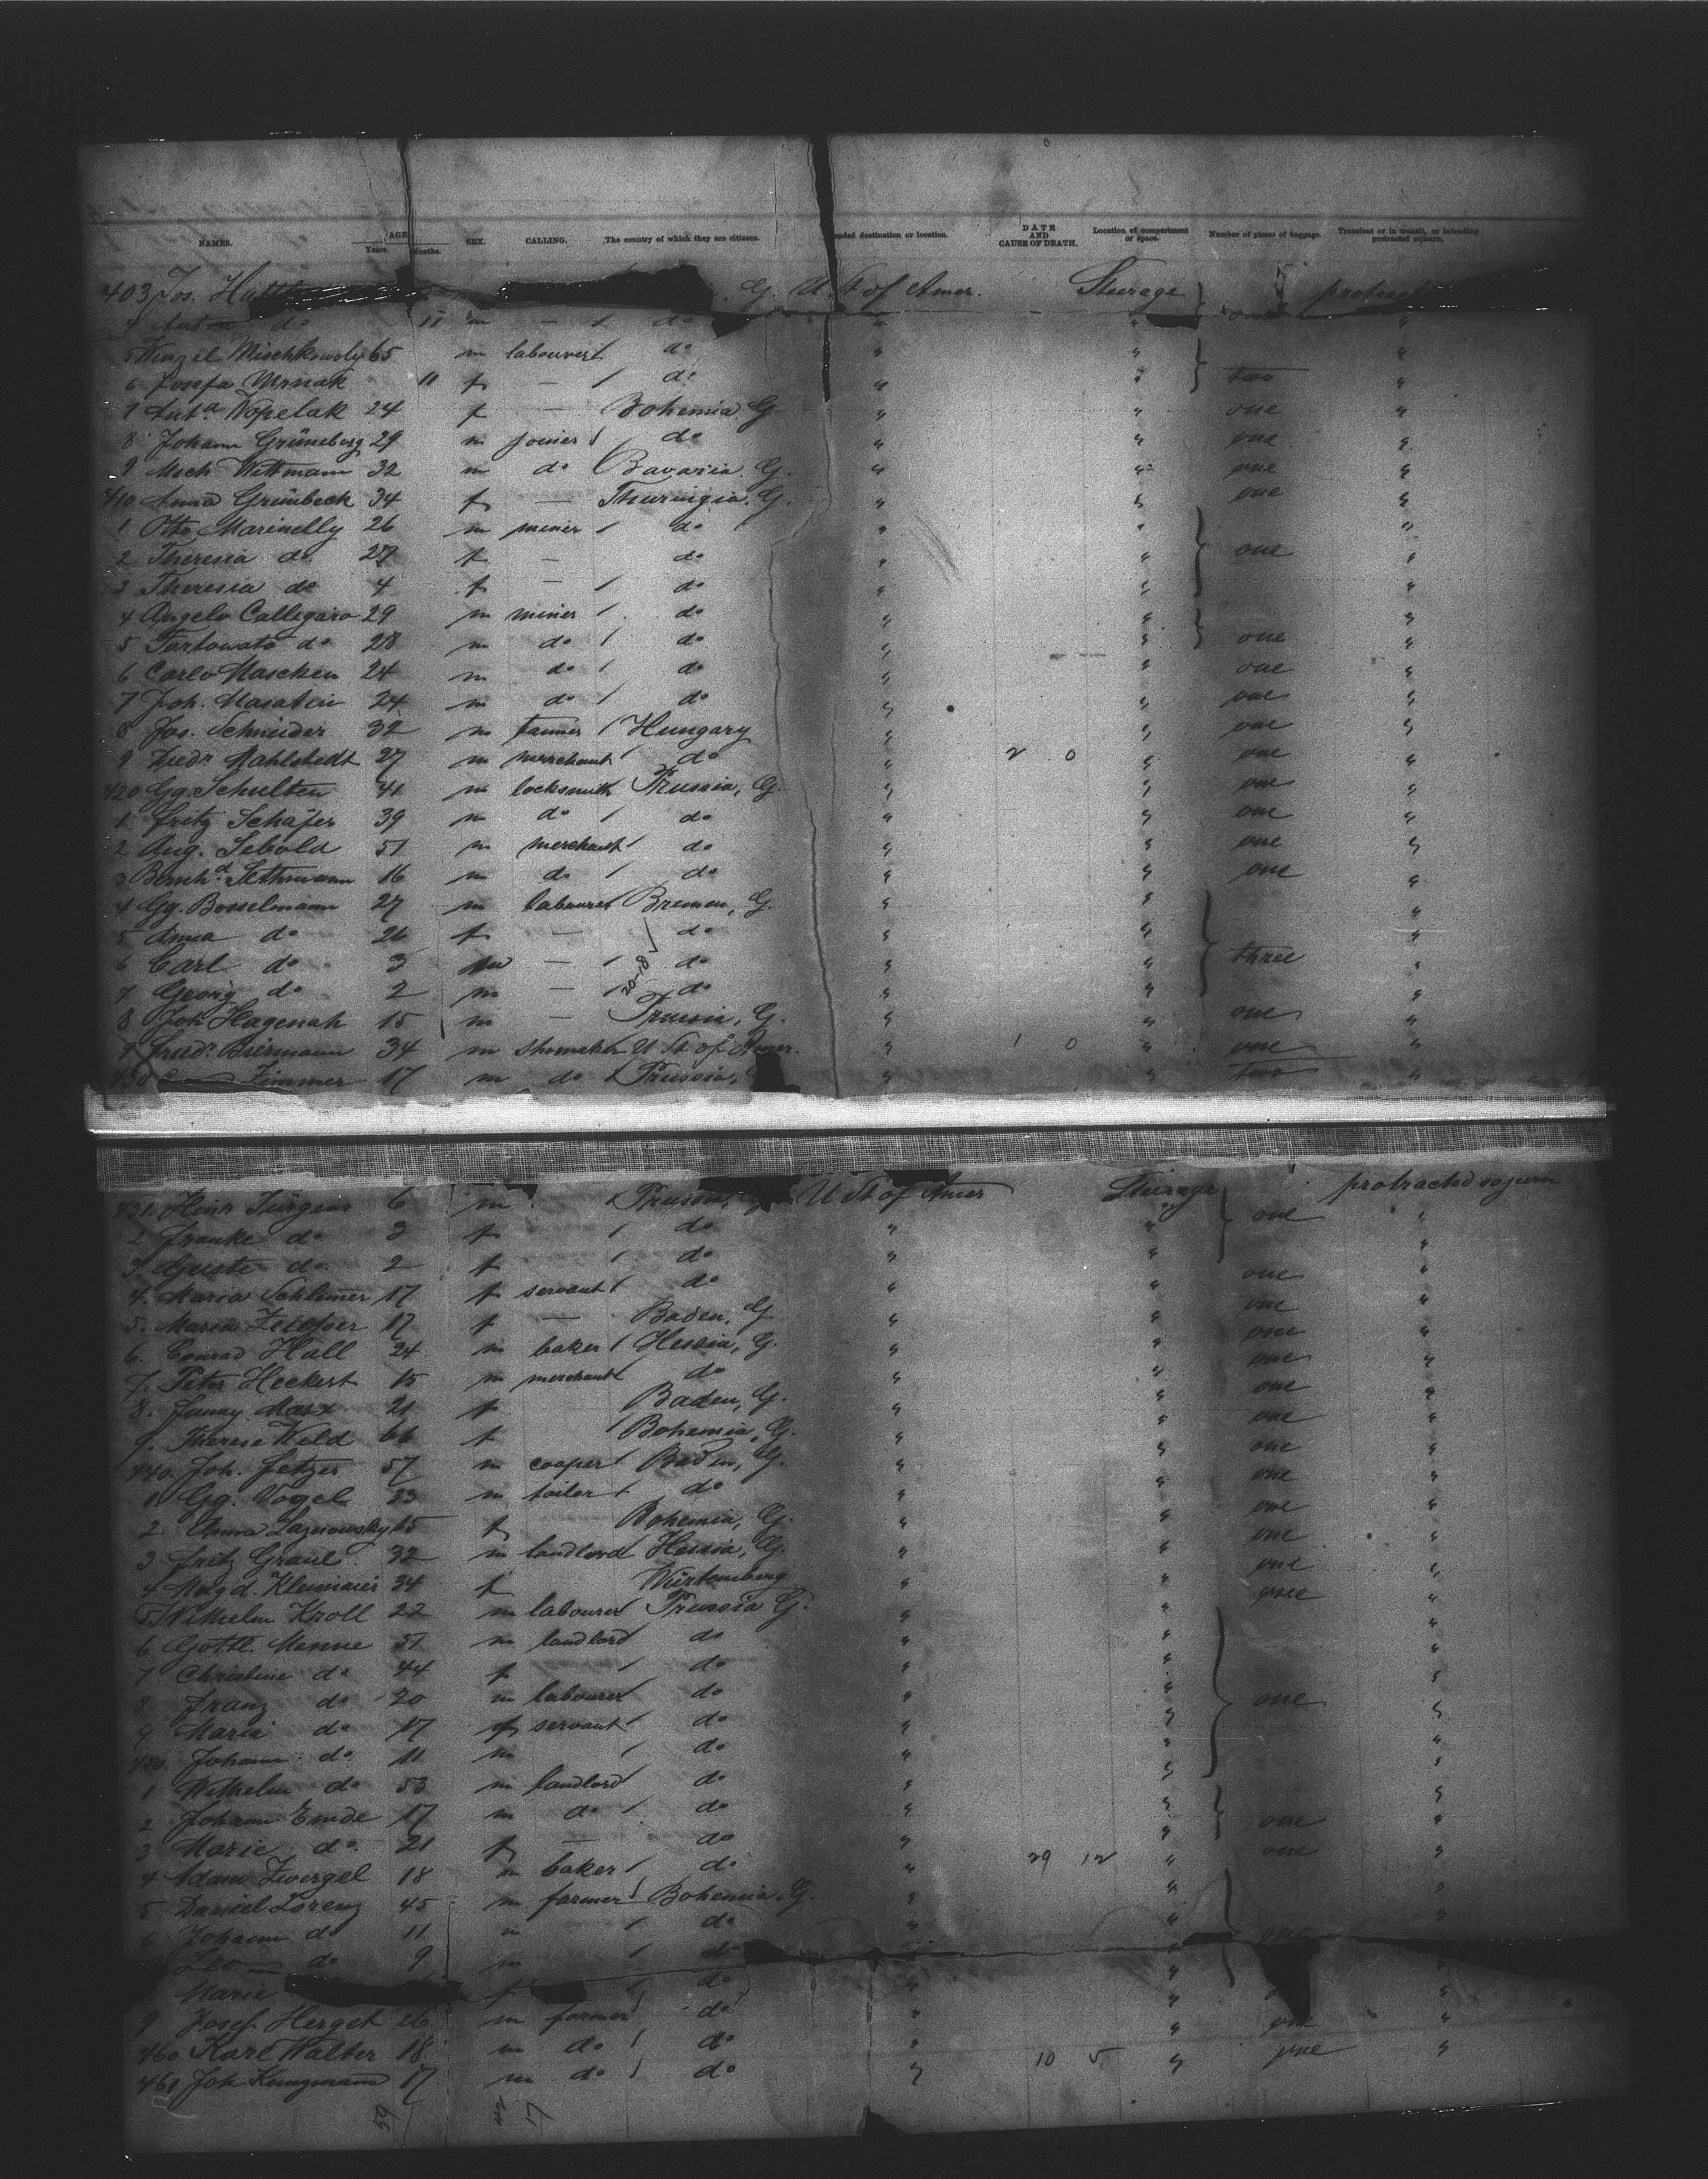 NAMES. AGE Years. Months. SEX. CALLING. The country of which they are citizens. nded destination or location. DATE AND CAUSE OF DEATH. Location of compartment or space. Number of pieces of baggage. Transient or in transit, or intending protracted sojourn.
403 Jos. G. U. St of Amer. Steurage protract
4 Anton do 11 m — do "
5 Wenzel Mischkowsly 65 m labourer do " " "
6 Josefa Wrnak 11 f — do " " two "
7 Anta Wopelak 24 f — Bohemia. G " " one "
8 Johann Grüneberg 29 m joiner do " " one "
9 Mich Wittmann 32 m do Bavaria. G. " " one "
410 Anna Grünbeck 34 f — Thuringia. G. " " one "
1 Otto Marinelly 26 m miner do " " "
2 Theresia do 27 f — do " " one "
3 Theresia do 4 f — do " " "
4 Angelo Callegaro 29 m miner do " " "
5 Fortowato do 28 m do do " " one "
6 Carlo Maschen 24 m do do " " one "
7 Joh. 24 m do do " " one "
8 Jos. Schneider 32 m Hungary " " one "
9 Diedr Mahlstedt 27 m merchant do " 2 0 " one "
420 Gg. Schulten 41 m locksmith Prussia, G. " " one "
1 Fritz Schäfer 39 m do do " " one "
2 Aug. Sebold 51 m merchant do " " one "
3 Bernhd 16 m do do " " one "
4 Gg. Bosselmann 27 m labourer Bremen, G. " " "
5 Anna do 26 f — do " " "
6 Carl do 3 m — do " " three "
7 Georg do 2 m — do " " "
8 Joh Hagenah 15 m — Prussia, G. " " one "
9 Fredr. Biermann 34 m shomaker U St of Amer. " 1 0 " one "
430 Zimmer 17 m do Prussia, " " two "
431. Hinr Jürgens 6 m Prussia, U St of Amer Steurage one protracted sojourn
2 Franke do 3 f do " " "
3. Guste do. 2 f do " " "
4. Maria 17 f servant do " " one "
5. Maria 17 f — Baden, G " " one "
6. Conrad Hall 24 m baker Hessia, G. " " one "
7. Peter Heckert 15 m merchant do " " one "
8. Fanny Marx 21 f Baden, G. " " one "
9. Therese Weld 66 f Bohemia, G. " " one "
440. Joh. Fetzer 57 m cooper Baden, G. " " one "
1 Gg. Vogel 23 m tailor do " " one "
2 Anna 65 f Bohemia, G. " " one "
3 Fritz Graue 32 m landlord Hessia, G. " " one "
4 Magd. Kleinmaier 34 f Würtemberg " " one "
5. Wilhelm Kroll 22 m labourer Prussia G. " " one "
6 Gottl. Menne 51 m landlord do " " "
7 Christine do 44 f do " " "
8 Franz do 20 m labourer do " " one "
9 Maria do 17 f servant do " " "
450. Johann do 11 m do " " "
1 Wilhelm do 53 m landlord do " " "
2 Johann Emde 17 m do do " " one "
3 Marie do. 21 f — do " " one "
4 Adam Zwergel 18 m baker do " 29 12 " "
5 Daniel Lorenz 45 m farmer Bohemia. G. " " "
6 Johann do 11 m do " " one "
Leo do 9 m do " " "
Marie f do " " "
9 Josef Herget 26 m farmer do " " one "
460 Karl Walter 18 m do do " " one "
461 Joh 17 m do do " 10 5 "
59 24 17